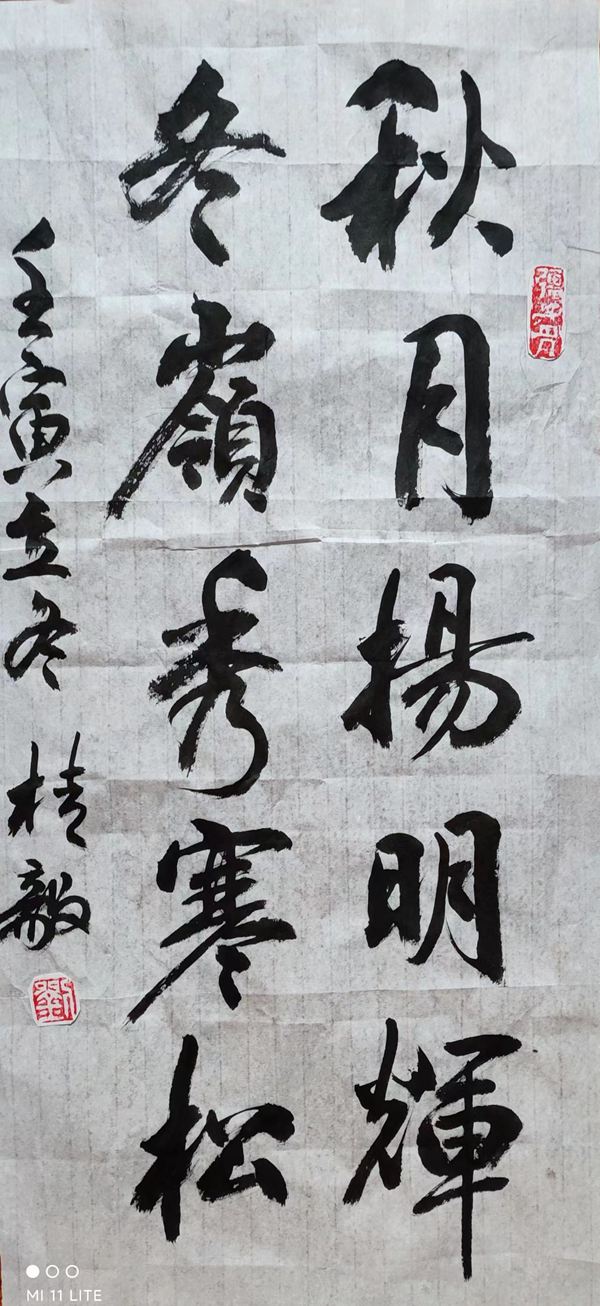 秋月揚明輝
冬嶺秀寒松
壬寅立冬
MI 11 LITE